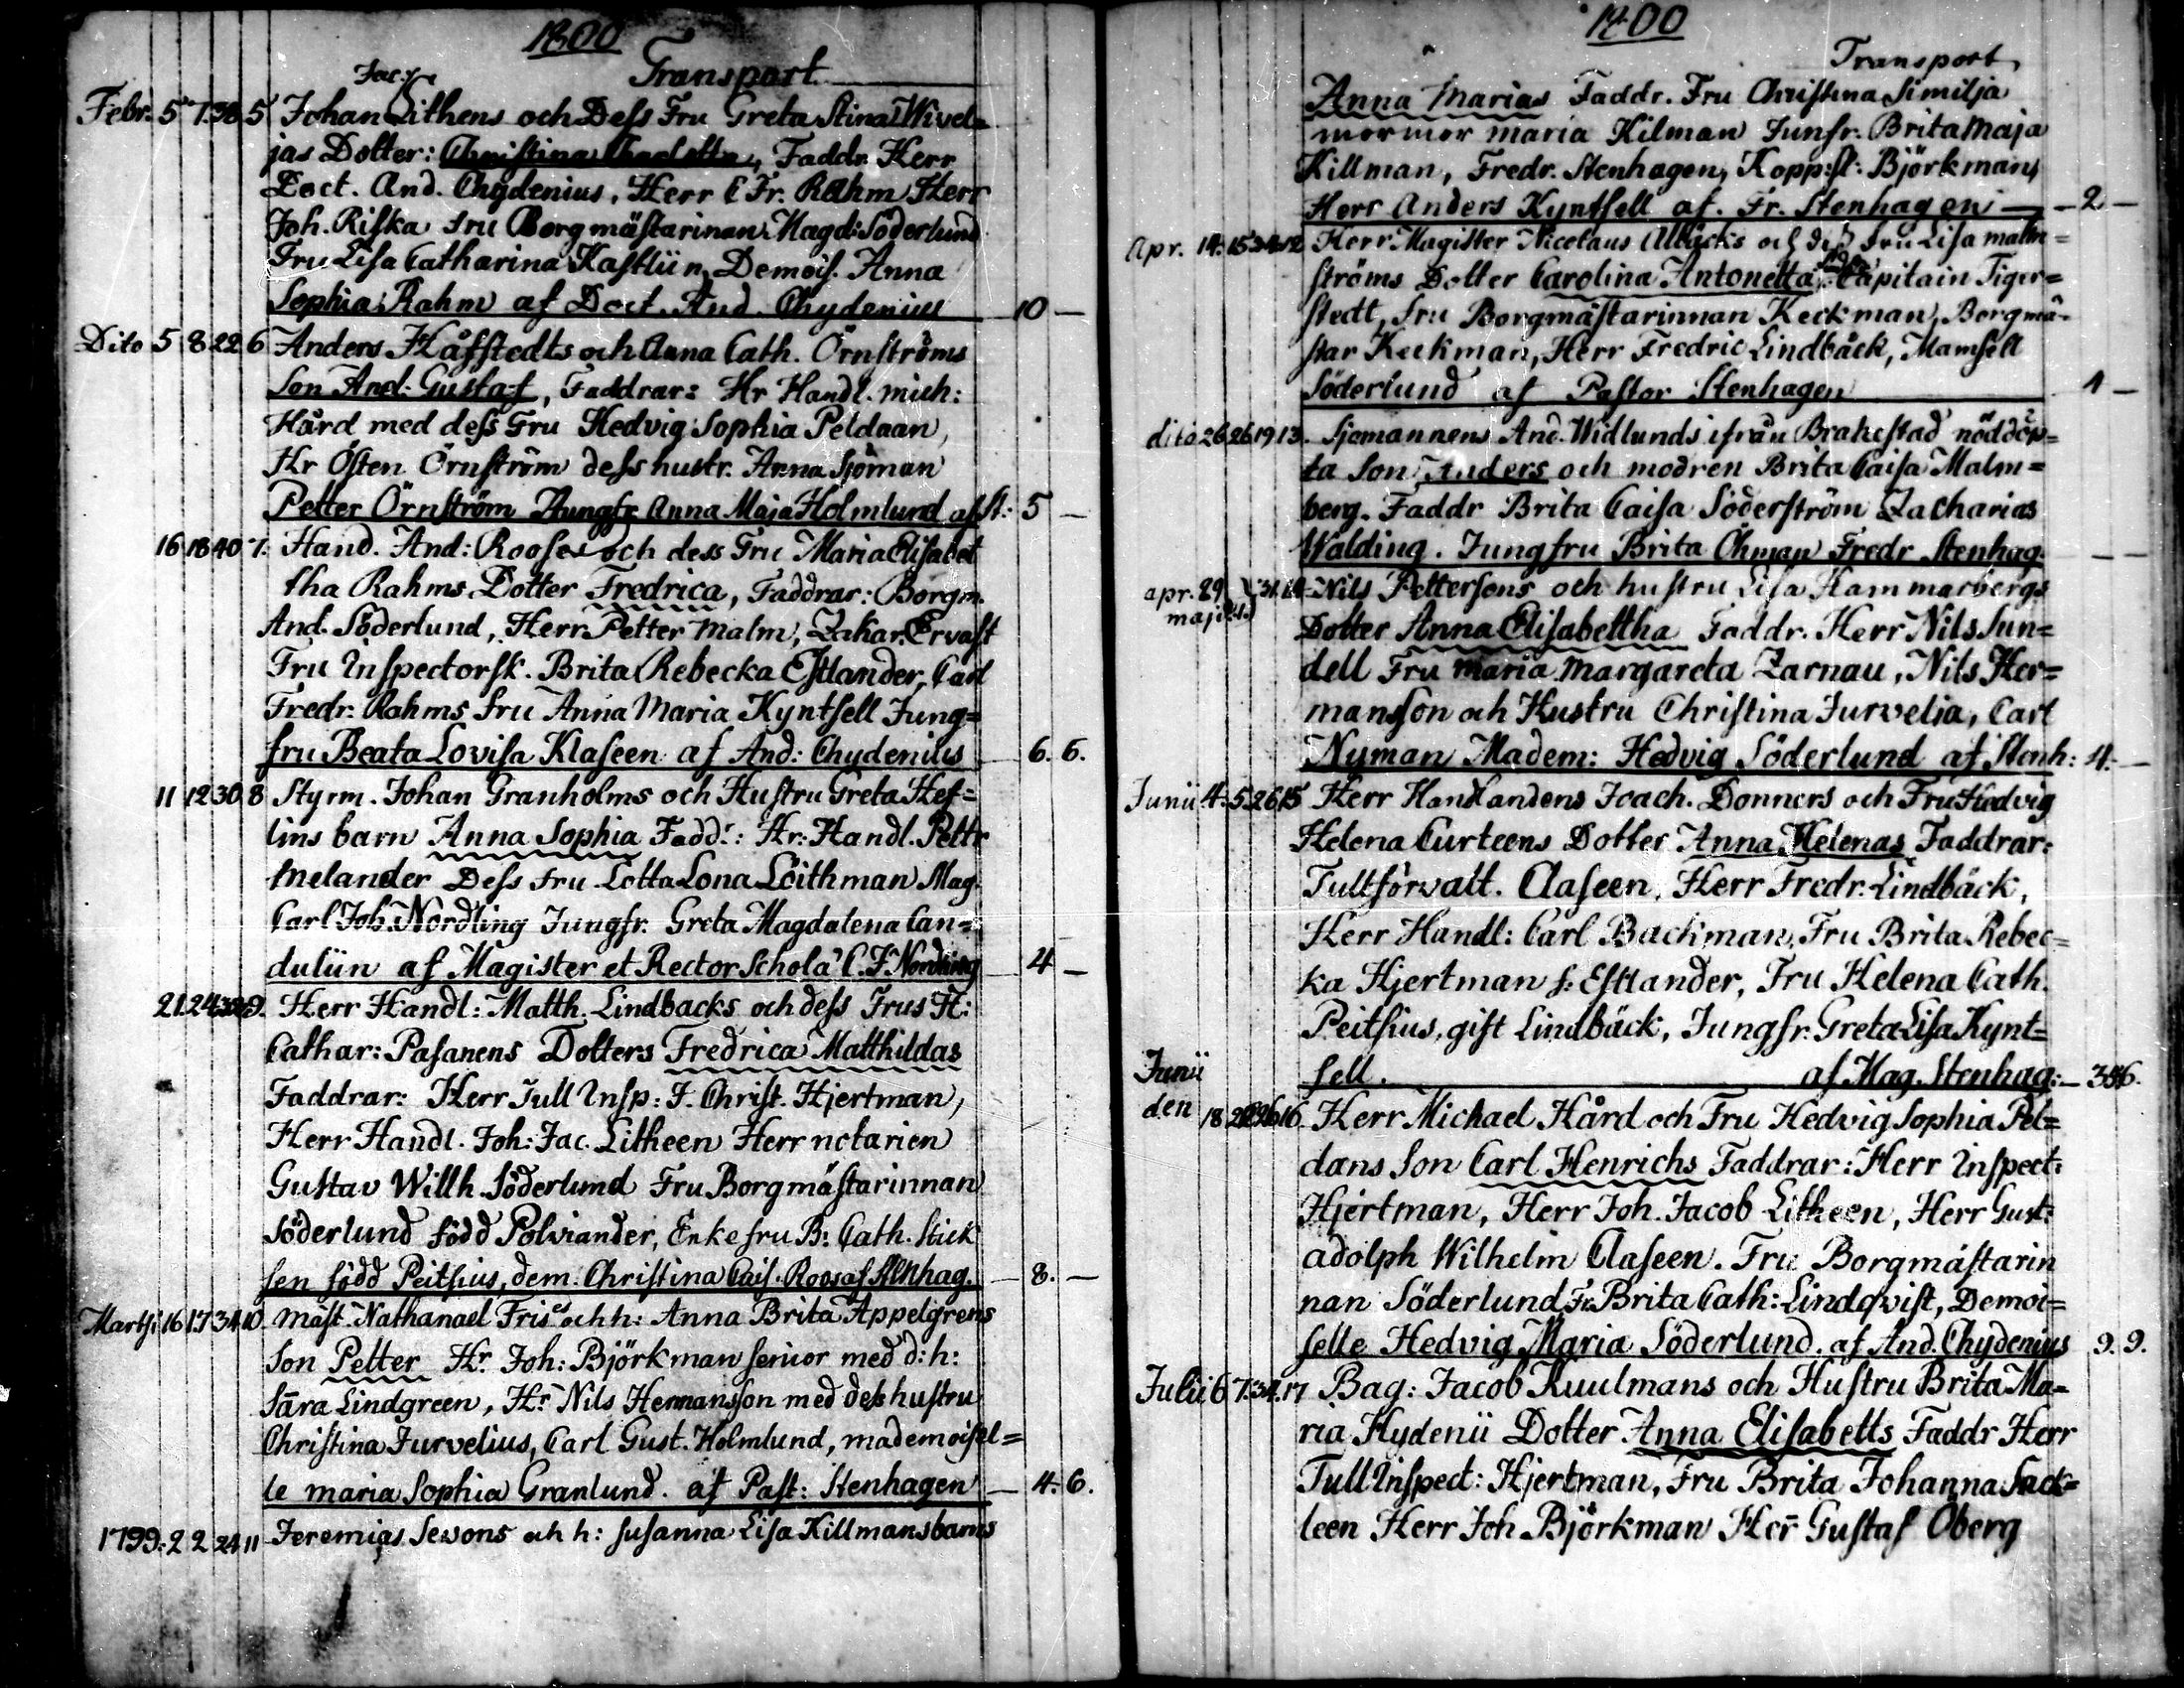 1800
Transport
Jac:
Febr. 5 7 38 5 Johan Lithens och Dess Fru Greta Stina Wivel=
jas Dotter: Christina Charlotta, Faddr. Herr
Doct. And. Chydenius, Herr C Fr. Rahm Herr
Joh. Riska Fru Borgmästarinan Magd: Söderlund
Fru Lisa Catharina Kastliin, Demois. Anna
Sophia Rahm af Doct. And. Chydenius 10 —
Dito 5 8 22 6 Anders Håfstedts och Anna Cath. Örnströms
Son And: Gustaf, Faddrar: Hr Handl. mich:
Hård med dess Fru Hedvig Sophia Peldaan,
Hr Östen Örnström dess hustr. Anna Sjöman
Petter Örnström Jungfr Anna Maja Holmlund af St: 5 —
16 18 40 7. Hand. And: Roose och dess Fru Maria Elisabet
tha Rahms Dotter Fredrica, Faddrar: Borgm.
And. Söderlund, Herr Petter Malm, Zakar. Ervast
Fru Inspectorsk. Brita Rebecka Estlander, Carl
Fredr: Rahms Fru Anna Maria Kyntsell Jung=
fru Beata Lovisa Klaseen af And: Chydenius 6. 6.
11 12 30 8 Styrm. Johan Granholms och Hustru Greta Hef=
lins barn Anna Sophia Fadd.r: Hr: Handl. Pettr
Melander Dess Fru Lotta Lona Löithman Mag.
Carl Joh. Nordling Jungfr. Greta Magdalena Can=
duliin af Magister et Rector Schola C. J. Nordling 4 —
21. 24. 32 9. Herr Handl: Matth. Lindbacks och dess Frus H:
Cathar: Pasanens Dotters Fredrica Matthildas
Faddrar: Herr Tull Insp: J. Christ. Hjertman,
Herr Handl. Joh: Jac. Litheen Herr notarien
Gustav Willh. Söderlund Fru Borgmästarinnan
Söderlund född Polviander, Enkefru B: Cath. Stick
sen född Peitsius, dem. Christina Cais. Roos af Stenhag. — 8. —
Martii 16 17 34 10. mäst. Nathanael Fris och h: Anna Brita Appelgrens
Son Petter Hr Joh: Björkman senior med d: h:
Sara Lindgreen, Hr Nils Hermansson med dess hustru
Christina Jurvelius, Carl Gust. Holmlund, mademoisel=
le maria Sophia Granlund. af Past: Stenhagen — 4. 6.
1799. 2 2 24 11 Jeremias Sesons och h: Susanna Lisa Killmans barns
1800
Transport
Anna Marias Faddr. Fru Christina Similja
mormor maria Kilman Junfr. Brita Maja
Killman, Fredr. Stenhagen, Kopp:sl: Björkmans
Herr Anders Kyntsell af. Fr. Stenhagen — 2 —
Apr. 14. 15 34 12 Herr Magister Nicolaus Albäcks och dess Fru Lisa malm=
ströms Dotter Carolina Antonetta Capitain Tiger=
stedt, Fru Borgmästarinnan Keckman, Borgmä-
star Keckman, Herr Fredric Lindbäck, Mamsell
Söderlund af Pastor Stenhagen 1 —
dito 26 26 19 13. Sjomannens And. Widlunds ifrån Brahestad nöddöp=
ta Son Anders och modren Brita Caisa Malm=
berg. Faddr Brita Caisa Söderström Zacharias
Walding. Jungfru Brita Öhman Fredr Stenhag. — —
apr. 29
maji 31. 14 Nils Pettersons och hustru Lisa Hammarbergs
Dotter Anna Elisabettha Faddr. Herr Nils Sun=
dell Fru Maria Margareta Zarnau, Nils Her=
mansson och Hustru Christina Jurvelia, Carl
Nyman Madem: Hedvig Söderlund af Stenh: 4: —
Junii 4. 5 26 15 Herr Handlandens Joach. Donners och Fru Hedvig
Helena Curteens Dotter Anna Helenas Faddrar:
Tullförvalt. Claseen, Herr Fredr. Lindbäck,
Herr Handl: Carl Backman, Fru Brita Rebec=
ka Hjertman f: Estlander, Fru Helena Cath.
Peitsius, gift Lindbäck, Jungfr. Greta Lisa Kynt=
sell. af Mag. Stenhag: —
Junii
den 18 16. Herr Michael Hård och Fru Hedvig Sophia Pel=
dans Son Carl Henrichs Faddrar: Herr Inspect:
Hjertman, Herr Joh. Jacob Litheen, Herr Gust:
adolph Wilhelm Claseen. Fru Borgmästarin
nan Söderlund Fr Brita Cath: Lindqvist, Demoi=
selle Hedvig Maria Söderlund. af And. Chydenius 9. 9.
Julii 6 7. 34. 17 Bag: Jacob Kuulmans och Hustru Brita Ma-
ria Hydenii Dotter Anna Elisabetts Faddr Herr
Tull Inspect: Hjertman, Fru Brita Johanna Sack=
leen Herr Joh Björkman Herr Gustaf Öberg